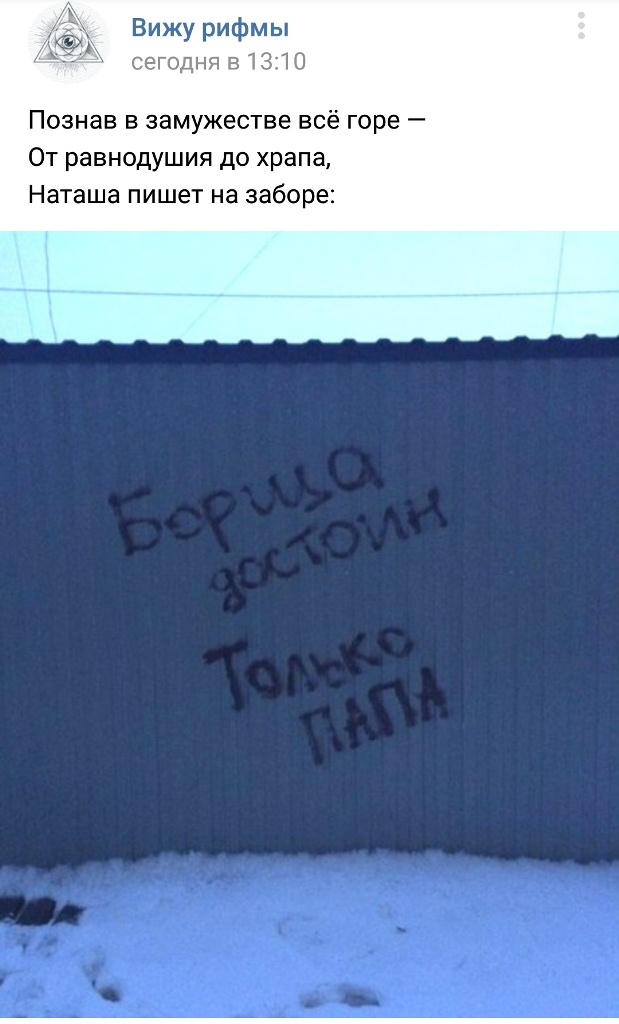 Вижу рифмы
сегодня в 13:10
Познав в замужестве всё горе —
От равнодушия до храпа,
Наташа пишет на заборе:
Борща
достоин
Только
ПАПА